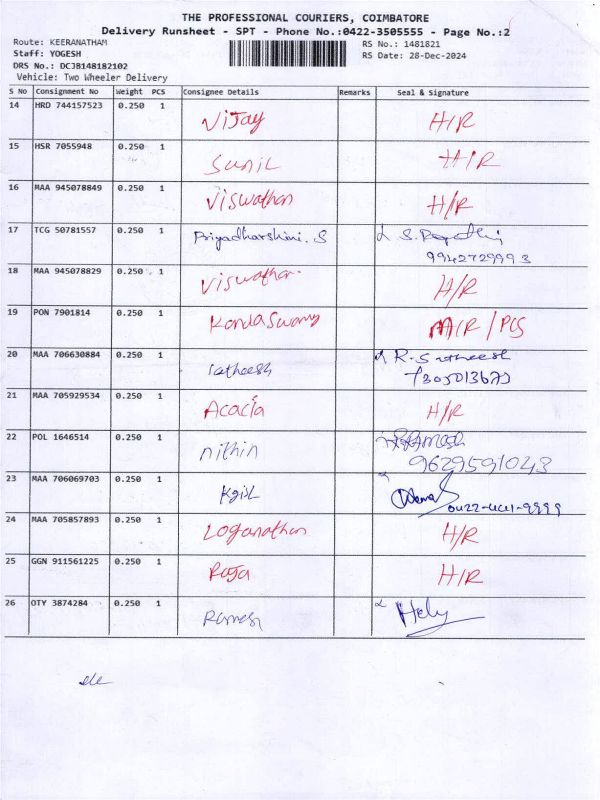 THE PROFESSIONAL COURIERS, COIMBATORE
Delivery Runsheet - SPT - Phone No.:0422-3505555 - Page No.:2
Route: KEERANATHAM
Staff: YOGESH
DRS No.: DCJB148182102
Vehicle: Two Wheeler Delivery
RS No.: 1481821
RS Date: 28-Dec-2024
S No Consignment No Weight PCS Consignee Details Remarks Seal & Signature
14 HRD 744157523 0.250 1 Vijay H/R
15 HSR 7055948 0.250 1 Sunil H/R
16 MAA 945078849 0.250 1 Viswathan H/R
17 TCG 50781557 0.250 1 Priyadharshini. S S.
9942729993
18 MAA 945078829 0.250 1 Viswathan. H/R
19 PON 7901814 0.250 1 KondaSwamy /PCS
20 MAA 706630884 0.250 1 R. Satheesh
21 MAA 705929534 0.250 1 Acacia H/R
22 POL 1646514 0.250 1 nithin
9629591043
23 MAA 706069703 0.250 1 KgisL
24 MAA 705857893 0.250 1 Loganathan H/R
25 GGN 911561225 0.250 1 Raja H/R
26 OTY 3874284 0.250 1 Ramesh